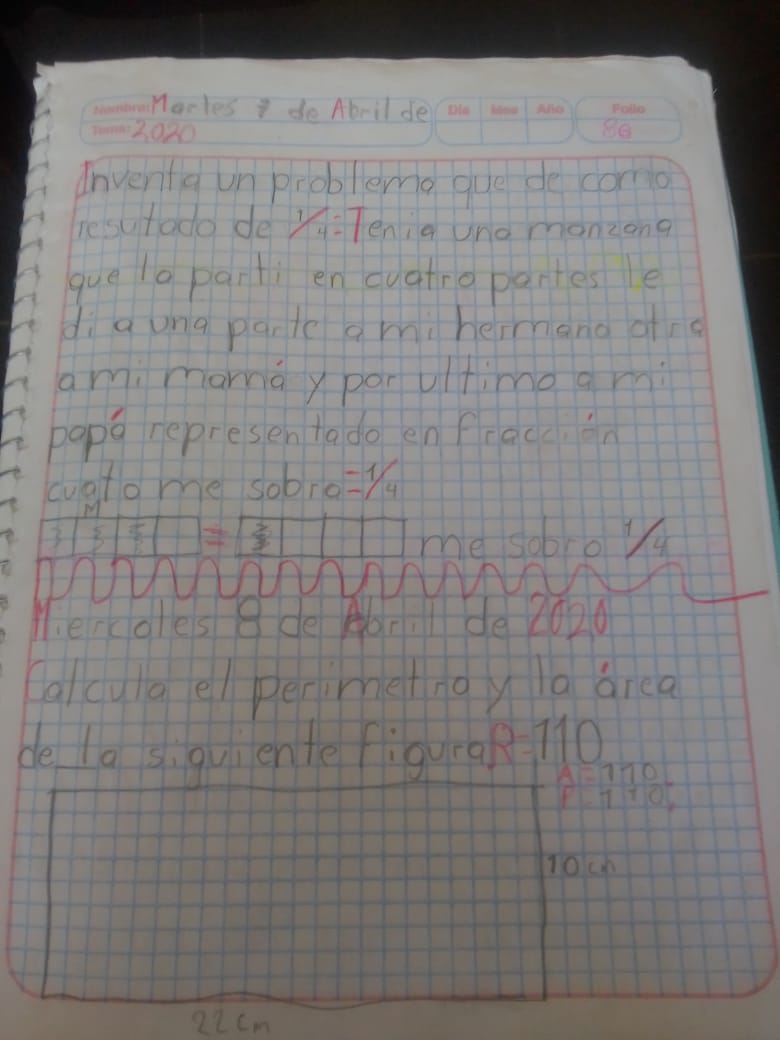 Nombre: Martes 7 de Abril de
Tema: 2020
Día Mes Año
Folio
86
Inventa un problema que de como
resutado de 1/4 = Tenia una manzana
que la parti en cuatro partes le
di a una parte a mi hermano otra
a mi mamá y por ultimo a mi
papá representado en fracción
cuato me sobro = 1/4
M
= me sobro 1/4
Miercoles 8 de Abril de 2020
Calcula el perimetro y la área
de la siguiente figura R=110
A=110
P=110
10 cm
22 cm